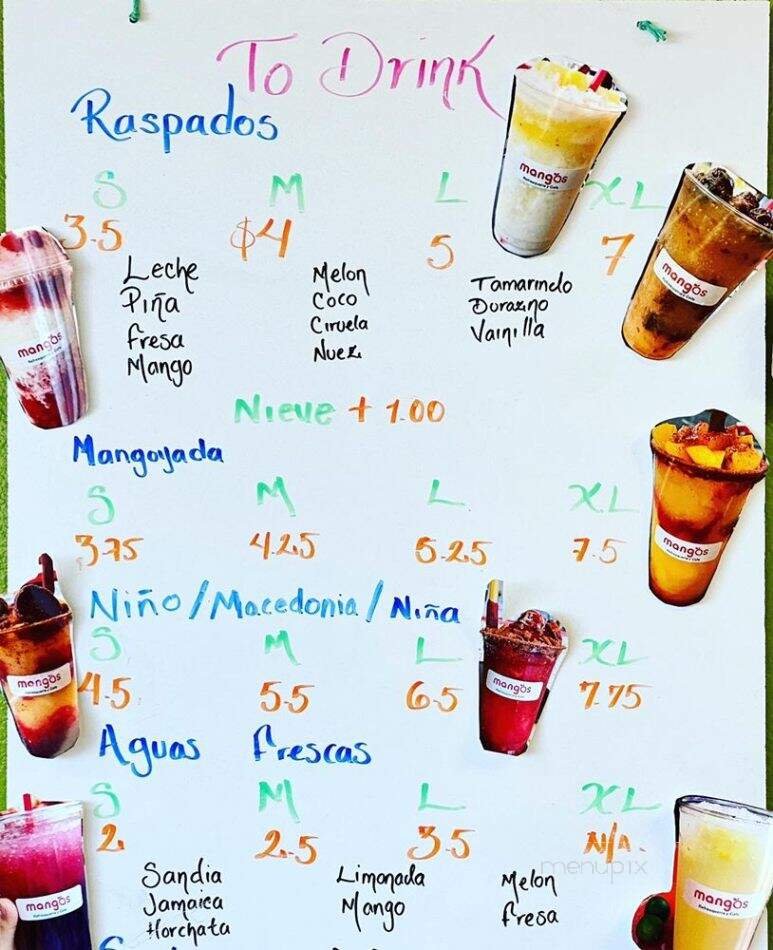 To Drink
Raspados
S M L XL
3.5 $4 5 7
Leche Melon Tamarindo
Piña Coco Durazno
Fresa Ciruela Vainilla
Mango Nuez
Nieve + 1.00
Mangoyada
S M L XL
3.75 4.25 5.25 7.5
Niño/Macedonia/Niña
S M L XL
4.5 5.5 6.5 7.75
Aguas Frescas
S M L XL
2. 2.5 3.5 N/A.
Sandia Limonada Melon
Jamaica Mango Fresa
Horchata
mangos
Refresqueria y Cafe
mangos
Refresqueria y Cafe
mangos
mangos
Refresqueria y Cafe
mangos
Refresqueria y Cafe
mangos
Refresqueria y Cafe
mangos
Refresqueria y Cafe
mangos
Refresqueria y Cafe
menupix